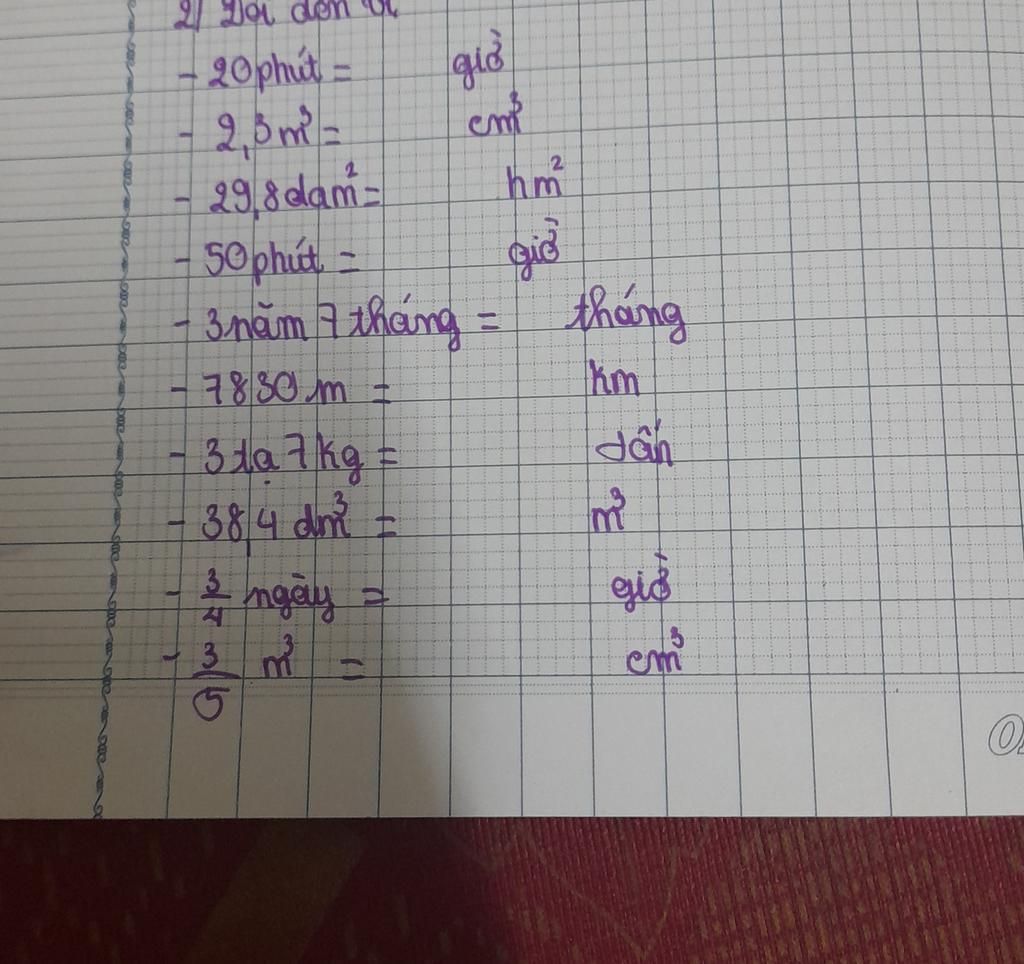 2) Đổi đơn vị
- 20 phút = giờ
- 2,3 m³ = cm³
- 29,8 dam² = hm²
- 50 phút = giờ
- 3 năm 7 tháng = tháng
- 7830 m = km
- 3 tạ 7 kg = tấn
- 38,4 dm³ = m³
- 3/4 ngày = giờ
- 3/5 m³ = cm³